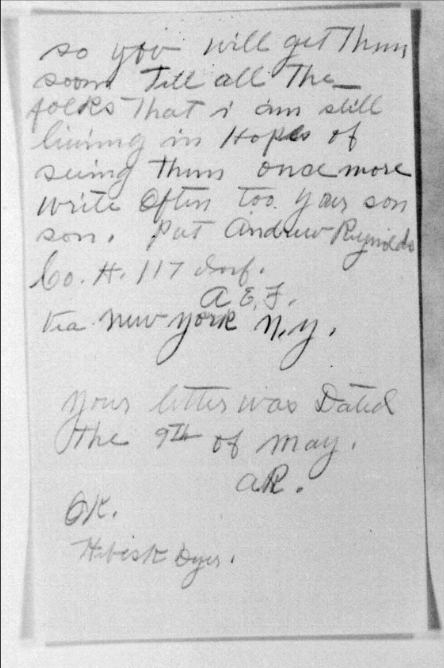 so you will get Them
soon Tell all The
folks That i am still
living in Hopes of
seing Them once more
write often too your son
son. Pvt Andrew Reynolds
Co. H. 117 Inf.
A E. F.
Via New york N. y.
your letter was Dated
The 9TH of may.
A R.
OK.
Dyer.